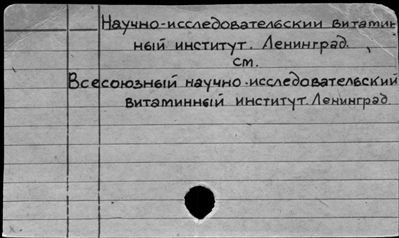 Научно-исследовательский витамин
ный институт. Ленинград.
см.
Всесоюзный научно-исследовательский
витаминный институт. Ленинград